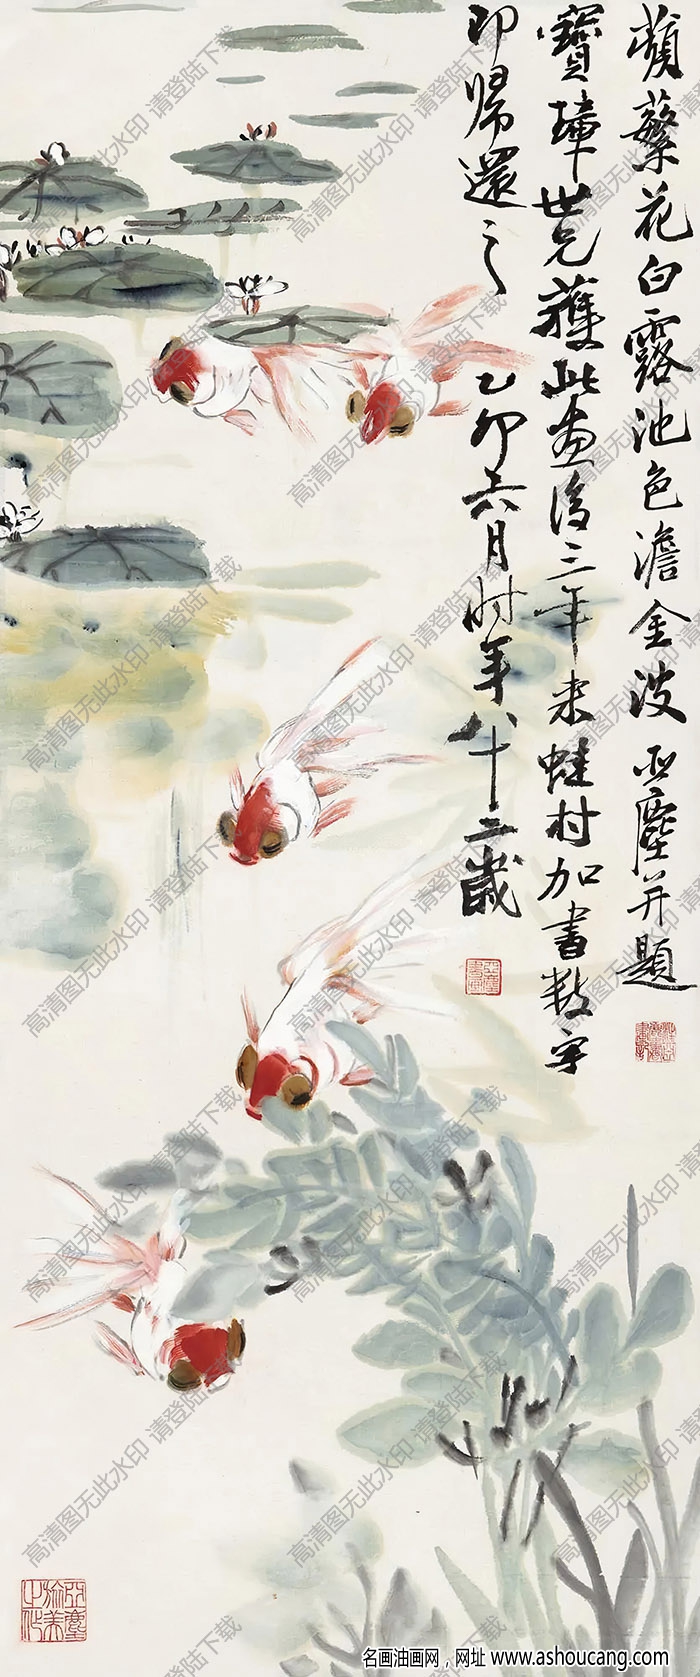 蘋蘩花白露池色澹金波 亞塵并題
寶瑋世兄蒦此畫後三年来蛙村加書数字
即歸還之 乙卯六月时年八十二歲
高清图无此水印 请登陆下载
名画油画网，网址 www.ashoucang.com